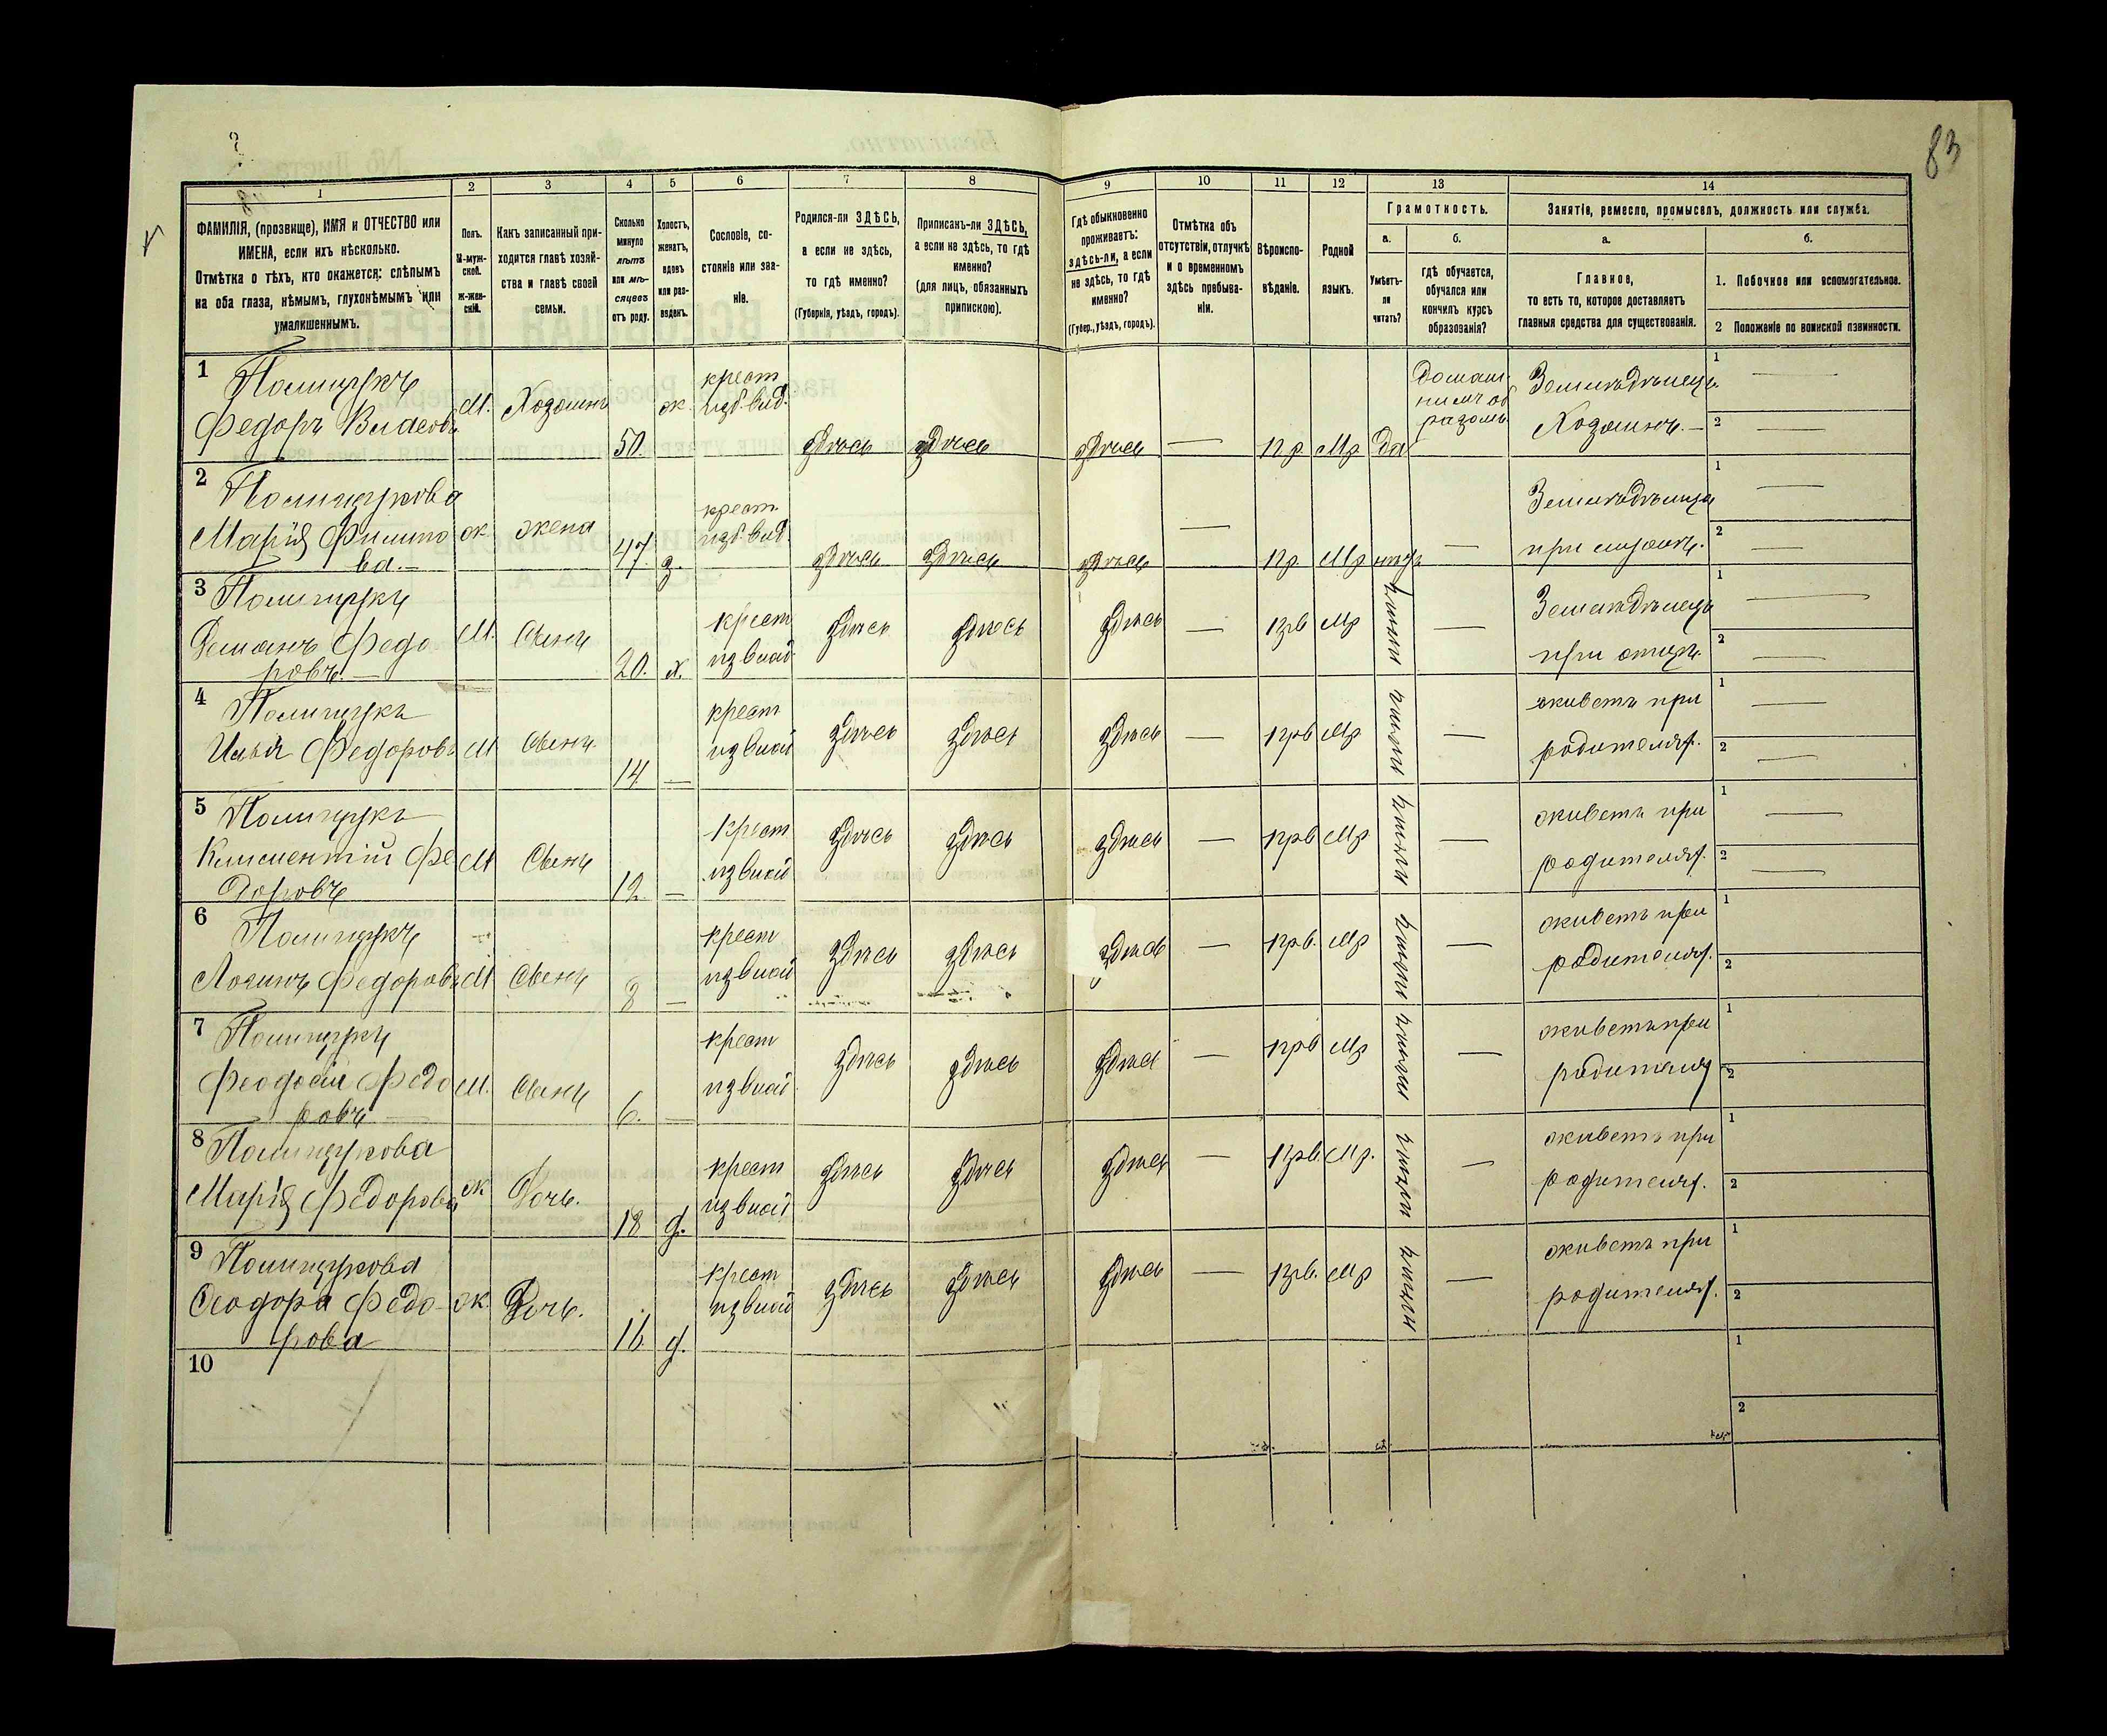 83
1
2
3
4
5
6
7
8
9
10
11
12
13
14
ФАМИЛІЯ, (прозвище), ИМЯ и ОТЧЕСТВО или
ИМЕНА, если ихъ нѣсколько.
Отмѣтка о тѣхъ, кто окажется: слѣпымъ
на оба глаза, нѣмымъ, глухонѣмымъ или
умалишеннымъ.
Полъ.
М-муж-
ской.
Ж-жен-
скій.
Какъ записанный при-
ходится главѣ хозяй-
ства и главѣ своей
семьи.
Сколько
минуло
лѣтъ
или мѣ-
сяцевъ
отъ роду.
Холостъ,
женатъ,
вдовъ
или раз-
веденъ.
Сословіе, со-
стояніе или зва-
ніе.
Родился-ли ЗДѢСЬ,
а если не здѣсь,
то гдѣ именно?
(Губернія, уѣздъ, городъ).
Приписанъ-ли ЗДѢСЬ,
а если не здѣсь, то гдѣ
именно?
(для лицъ, обязанныхъ
припискою).
Гдѣ обыкновенно
проживаетъ:
здѣсь-ли, а если
не здѣсь, то гдѣ
именно?
(Губер., уѣздъ, городъ).
Отмѣтка объ
отсутствіи, отлучкѣ
и о временномъ
здѣсь пребыва-
ніи.
Вѣроиспо-
вѣданіе.
Родной
языкъ.
Грамотность.
а.
Умѣетъ-
ли
читать?
б.
гдѣ обучается,
обучался или
кончилъ курсъ
образованія?
Занятіе, ремесло, промыселъ, должность или служба.
а.
Главное,
то есть то, которое доставляетъ
главныя средства для существованія.
б.
1. Побочное или вспомогательное.
2 Положеніе по воинской повинности.
1 Полищукъ
Федоръ Власовъ
М. Хозяинъ 50. ж. крест.
здѣсь здѣсь здѣсь — пр. Мр да
домаш-
нимъ об
разомъ
Земледѣлецъ
Хозяинъ. —
1
2
2 Полищукова
Марія Филипо
ва. —
ж жена 47. з. крест.
здѣсь здѣсь здѣсь — пр. Мр нѣтъ —
Земледѣлица
при мужѣ.
1
2
3 Полищукъ
Демянъ Федо
ровъ. —
М. Сынъ 20. х. крест
здѣсь здѣсь здѣсь — прв Мр —
Земледѣлецъ
при отцѣ.
1
2
4 Полищукъ
Илья Федоровъ
М Сынъ. 14 — крест
здѣсь здѣсь здѣсь — прв Мр —
живетъ при
родителях.
1
2
5 Полищукъ
Климентій Фе
доровъ
М Сынъ 12. — крест
здѣсь здѣсь здѣсь — прв Мр —
живетъ при
родителях.
1
2
6 Полищукъ
Логинъ Федоровъ
М Сынъ 8 — крест
здѣсь здѣсь здѣсь — прв. Мр —
живетъ при
родителях.
1
2
7 Полищукъ
Феодосій Федо
ровъ —
М. Сынъ 6. — крест
здѣсь здѣсь здѣсь — прв Мр —
живетъ при
родителях
1
2
8 Полищукова
Марія Федорова
ж Дочь. 18 д. крест
здѣсь здѣсь здѣсь — прв. Мр. —
живетъ при
родителях.
1
2
9 Полищукова
Феодора Федо-
рова
ж. Дочь. 16 д. крест
здѣсь здѣсь здѣсь — прв. Мр —
живетъ при
родителях.
1
2
10
1
2